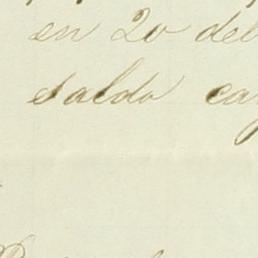 en 20 del
saldo